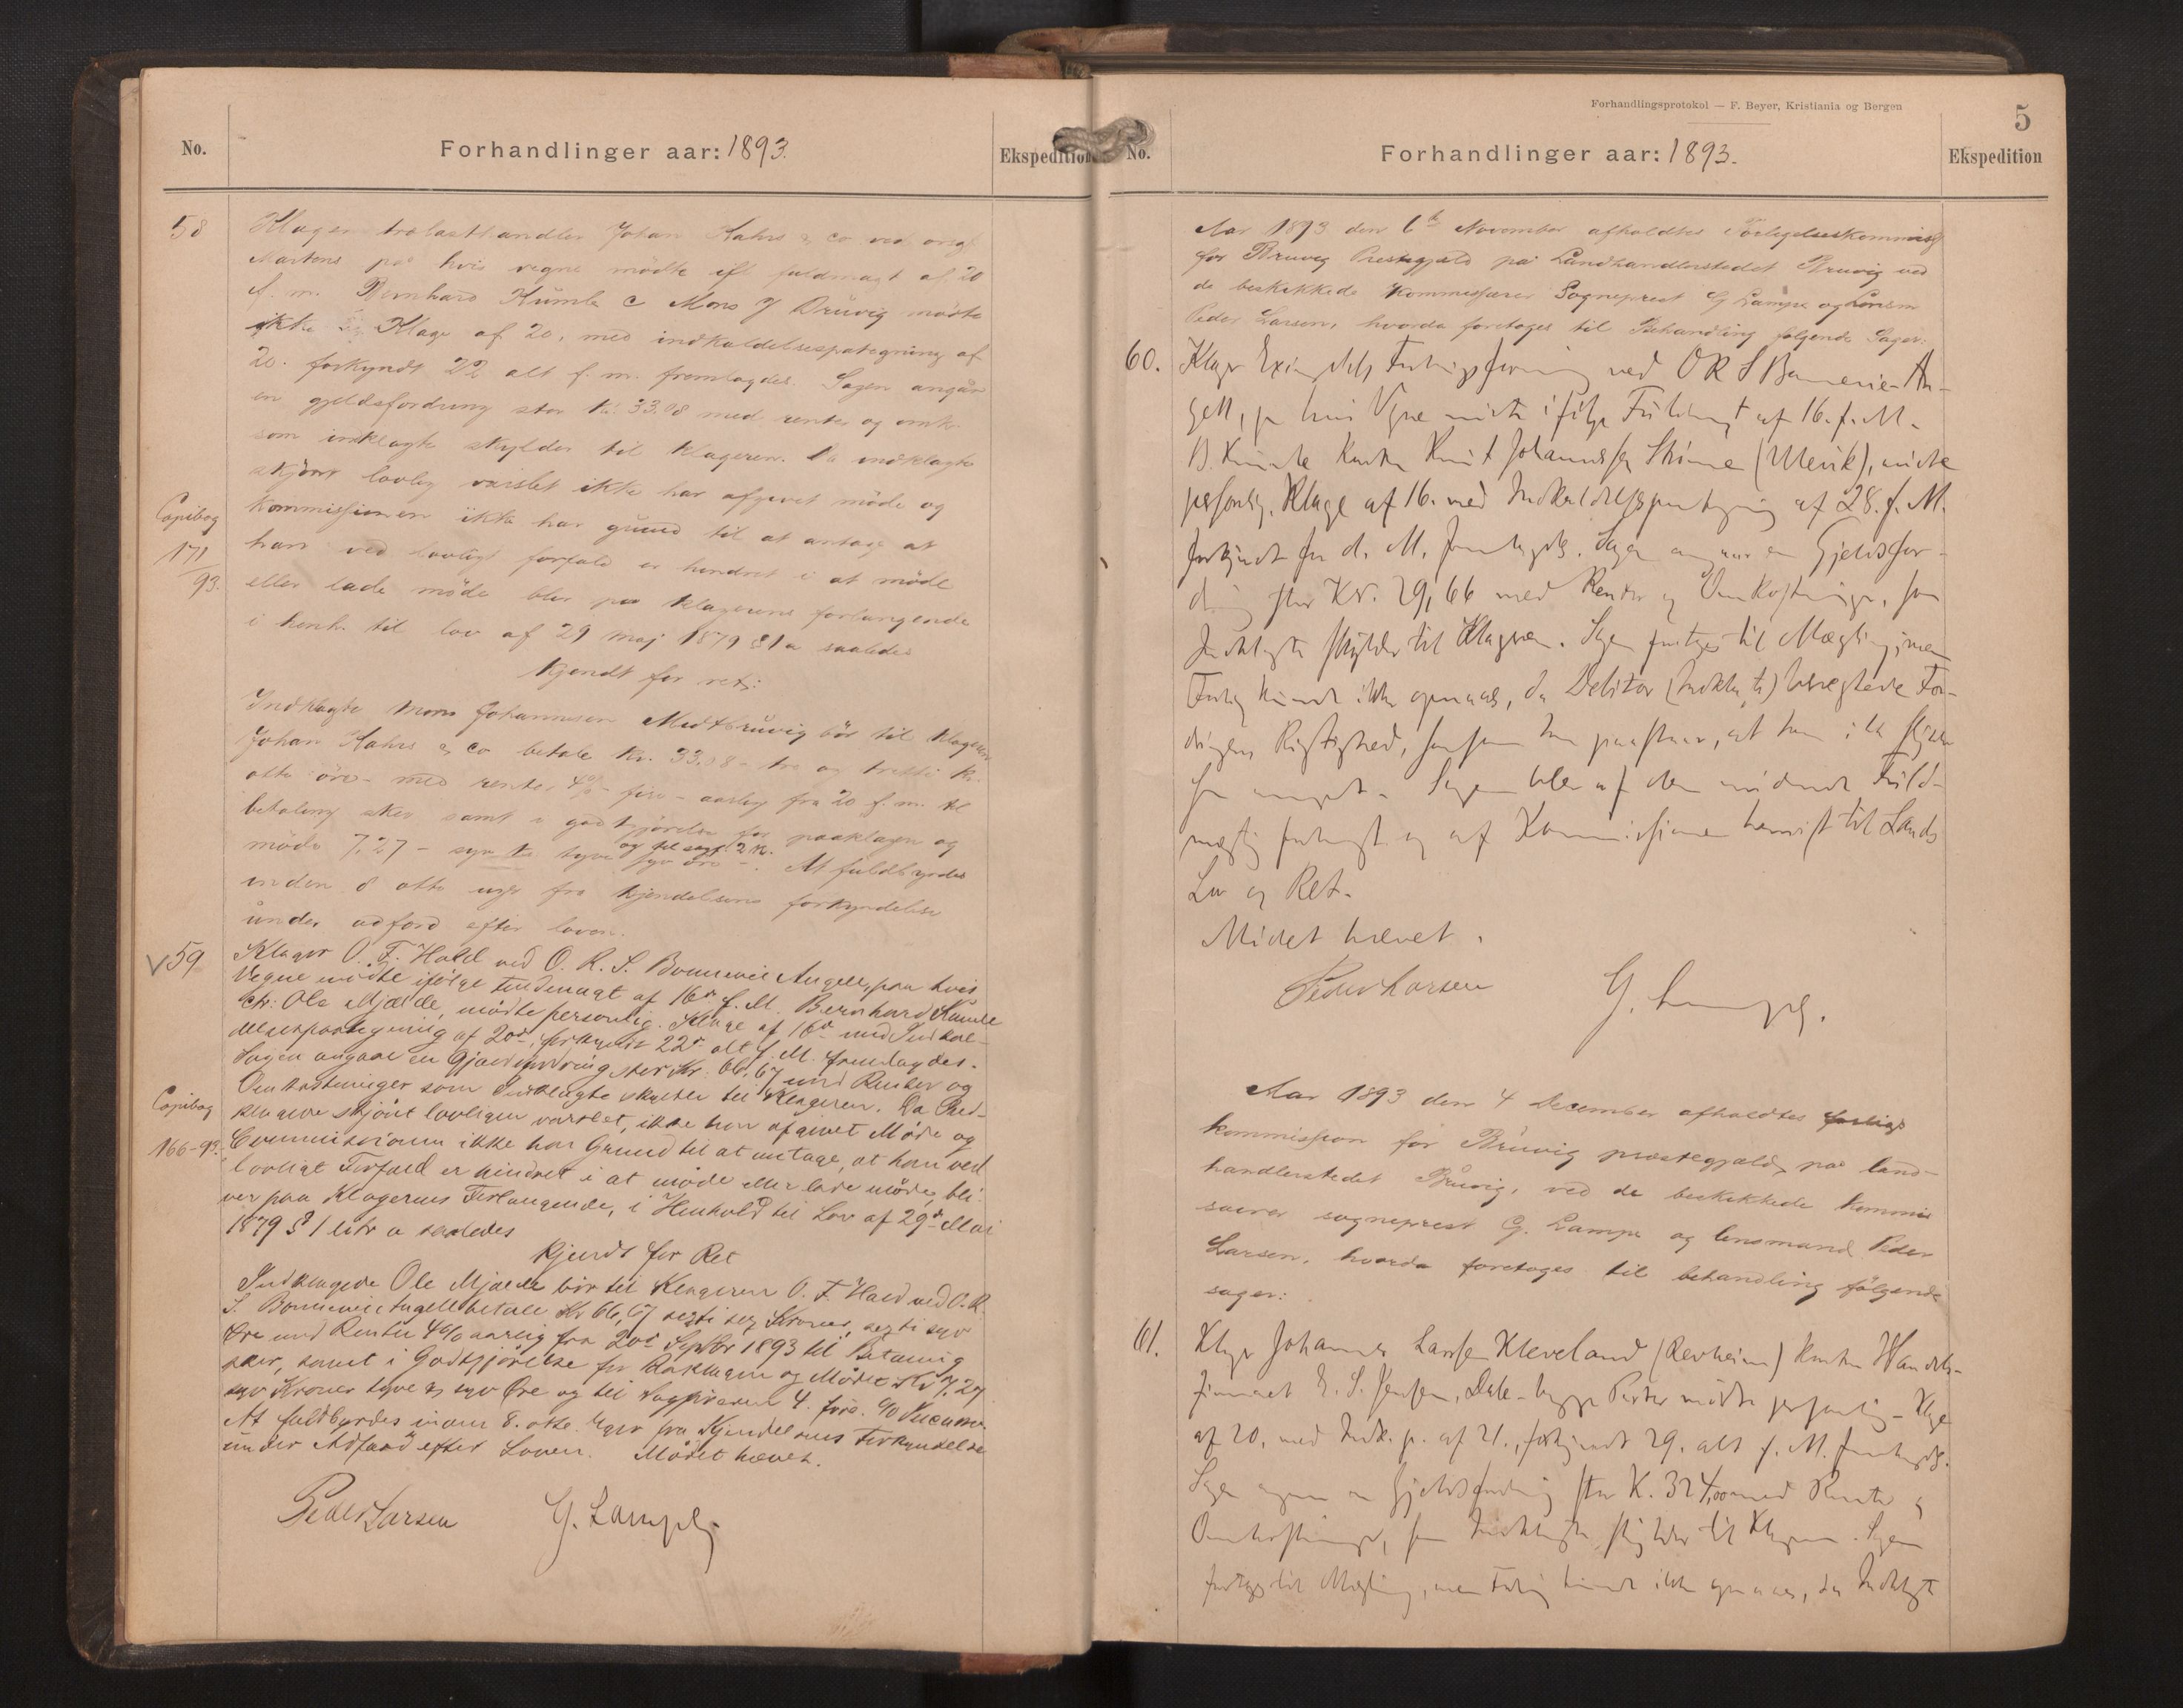 No.
Forhandlinger aar: 1893.
Ekspedition
58
Klager trælasthandler Johan Kahrs & co ved
Martens på hvis vegne mödte ifl fuldmagt af 20
f. m. Bernhard Kümle c Mons J Brüvig mödte
ikke Klage af 20, med indkaldelsespategning af
20. forkyndt 22 alt f. m. fremlagdes. Sagen angår
en gjeldsfordring stor kr. 33.08 med renter og omk.
som indklagte skylder til klageren. Da indklagte
skjönt lovlig varslet ikke har afgivet möde og
Copibog
kommissionen ikke har grund til at antage at
171/93.
han ved lovligt forfald er hindret i at möde
eller lade möde blev paa klagerens forlangende
i henh. til lov af 29 maj 1879 § 1 a saaledes
kjendt for ret:
Indklagte Mons Johannesen Midtbrüvig bör til klageren
Johan Kahrs & co betale kr. 33.08 - tre og tretti kr.
otte öre - med renter 4% - fire - aarlig fra 20 f. m. til
betaling sker samt i godtgjörelse for paaklagen og
og til sagf. 2 kr.
möde 7.27 - syv kr tyve syv öre -. At fuldbyrdes
inden 8 otte uger fra kjendelsens forkyndelse
under adfærd efter loven.
V 59
Klager O. F. Hald ved O. R. S. Bonnevie Angell, paa hvis
Vegne mödte ifölge Fuldmagt af 16de f. M. Bernhard Kümle
ctr: Ole Mjælde, mödte personlig. Klage af 16de med Indkal-
delsespaategning af 20de, forkyndt 22de alt f. M. fremlagdes.
Sagen angaar en Gjældsfordring stor Kr. 66,67 med Renter og
Omkostninger som Indklagte skylder til Klageren. Da Ind-
Copibog
klagede skjönt lovligen varslet, ikke har afgivet Möde og
166-93.
Commissionen ikke har Grund til at antage, at han ved
lovligt Forfald er hindret i at möde eller lade möde, bli-
ver paa Klagerens Forlangende, i Henhold til Lov af 29de Mai
1879 § 1 litr a saaledes
Kjendt for Ret
Indklagede Ole Mjælde bör til Klageren O. F. Hald ved O. R.
S. Bonnevie Angell betale Kr 66,67 sexti sex Kroner, sexti syv
Öre med Renter 4% aarlig fra 20de Septbr 1893 til Betaling
sker, samt i Godtgjörelse for og Möde Kr 7.27
syv Kroner tyve & syv Öre og til
At fuldbyrdes inden 8. otte Uger fra Kjendelsens Forkyndelse
under Adfærd efter Loven. Mödet hævet.
Peder Larsen G. Lampe
Forhandlingsprotokol — F. Beyer, Kristiania og Bergen
5
No.
Forhandlinger aar: 1893.
Ekspedition
Aar 1893 den 6te November afholdtes Forligelseskommiss
for Bruvig Prestegjæld på Landhandlerstedet Bruvig ved
de beskikkede Kommissærer Sogneprest G Lampe og Lensm
Peder Larsen, hvorda foretoges til Behandling følgende Sager:
60.
Klager ved O R S Bonnevie An-
gell, paa hvis Vegne mødte ifølge Fuldmagt af 16. f. M.
B. Kümle Knut Johannessen (Ulevik), mødte
personlig. Klage af 16. med Indkaldelsespaategning af 28. f. M.
forkyndt for d. M. fremlagdes. Sagen angaar en Gjeldsfor-
dring stor Kr. 29,66 med Renter og Omkostninger, som
Indklagte skylder til Klageren. Sagen foretoges til Mægling, men
Forlig kunde ikke opnaaes, da Debitor (Indklagte) benegtede For-
dringens Rigtighed, saasom han paastaar, at han ikke skylder
saa meget. Sagen blev af den mødende Fuld-
mægtig forlangt og af Kommissionen henvist til Lands
Lov og Ret.
Mødet hævet.
Peder Larsen G. Lampe.
Aar 1893 den 4 December afholdtes forligs
kommission for Brüvig præstegjæld, på land-
handlerstedet Brüvig, ved de beskikkede kommis
særer sogneprest G. Lampe og lensmand Peder
Larsen, hvorda foretoges til behandling følgende
sager:
61.
Klager Johannes Larsen Kleveland (Revheim) Handels-
firmaet E. S. Jensen, Dale - begge Parter mødte personlig - Klage
af 20. med Indk. p. af 21., forkyndt 29. alt f. M. fremlagdes.
Sagen angaar en Gjeldsfordring stor K. 324,00 med Renter og
Omkostninger, som Indklagte skylder til Klageren. Sagen
foretoges til Mægling, men Forlig kunde ikke opnaaes, da Indklagte